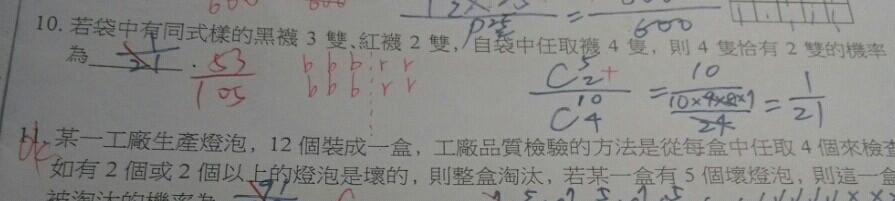 10. 若袋中有同式樣的黑襪 3 雙、紅襪 2 雙, 自袋中任取襪 4 隻, 則 4 隻恰有 2 雙的機率
為 1/21 . 53/105
b b b r r
b b b r r
C⁵₂+ / C¹⁰₄ = 10 / (10×9×8×7 / 24) = 1/21
11. 某一工廠生產燈泡, 12 個裝成一盒, 工廠品質檢驗的方法是從每盒中任取 4 個來檢查
如有 2 個或 2 個以上的燈泡是壞的, 則整盒淘汰, 若某一盒有 5 個壞燈泡, 則這一盒
被淘汰的機率為